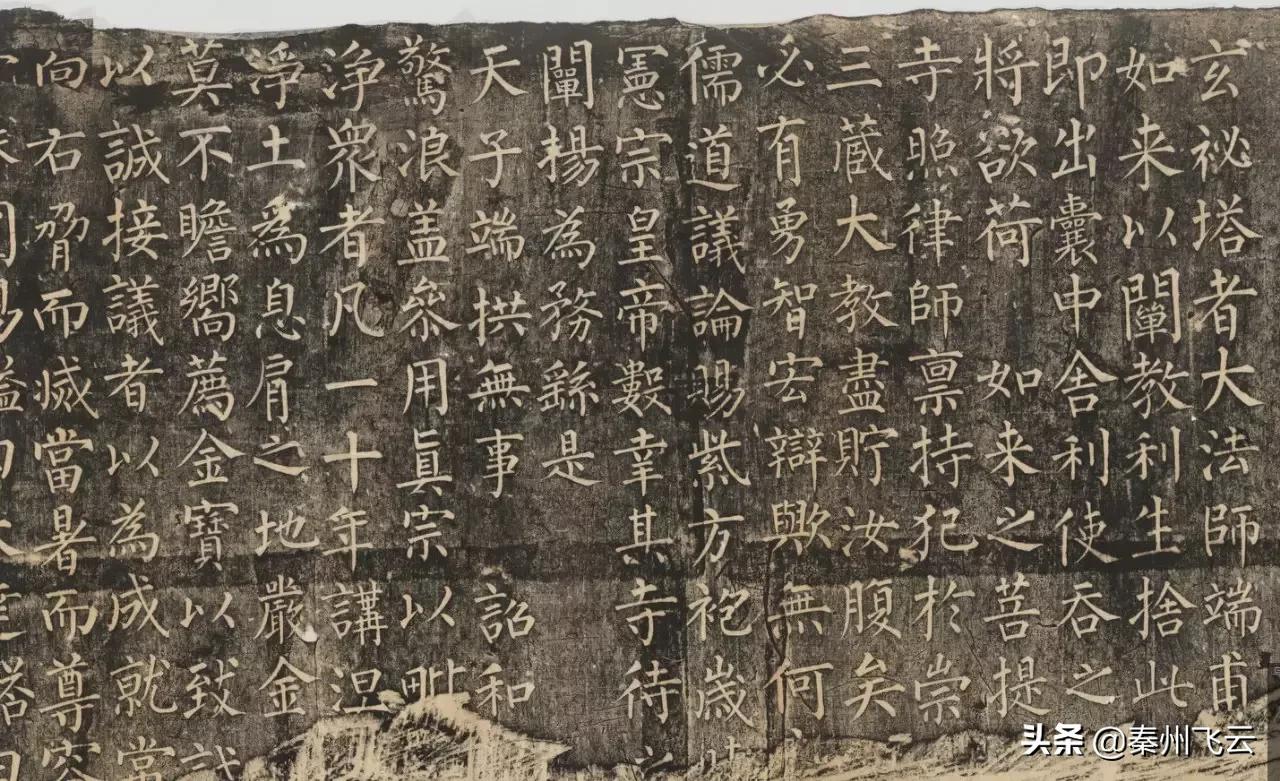 玄祕塔者大法師端甫
如来以闡教利生捨此
即出囊中舍利使吞之
將欲荷 如来之菩提
寺照律師禀持犯於崇
三蔵大教盡貯汝腹矣
必有勇智宏辯歟無何
儒道議論賜紫方袍歳
憲宗皇帝數幸其寺待
闡揚為務繇是
天子端拱無事 詔和
驚浪盖叅用真宗以毗
浄衆者凡一十年講涅
淨土爲息肩之地嚴金
莫不瞻嚮薦金寶以致誠
以誠接議者以為成就常
向右脅而滅當暑而尊容
头条 @秦州飞云